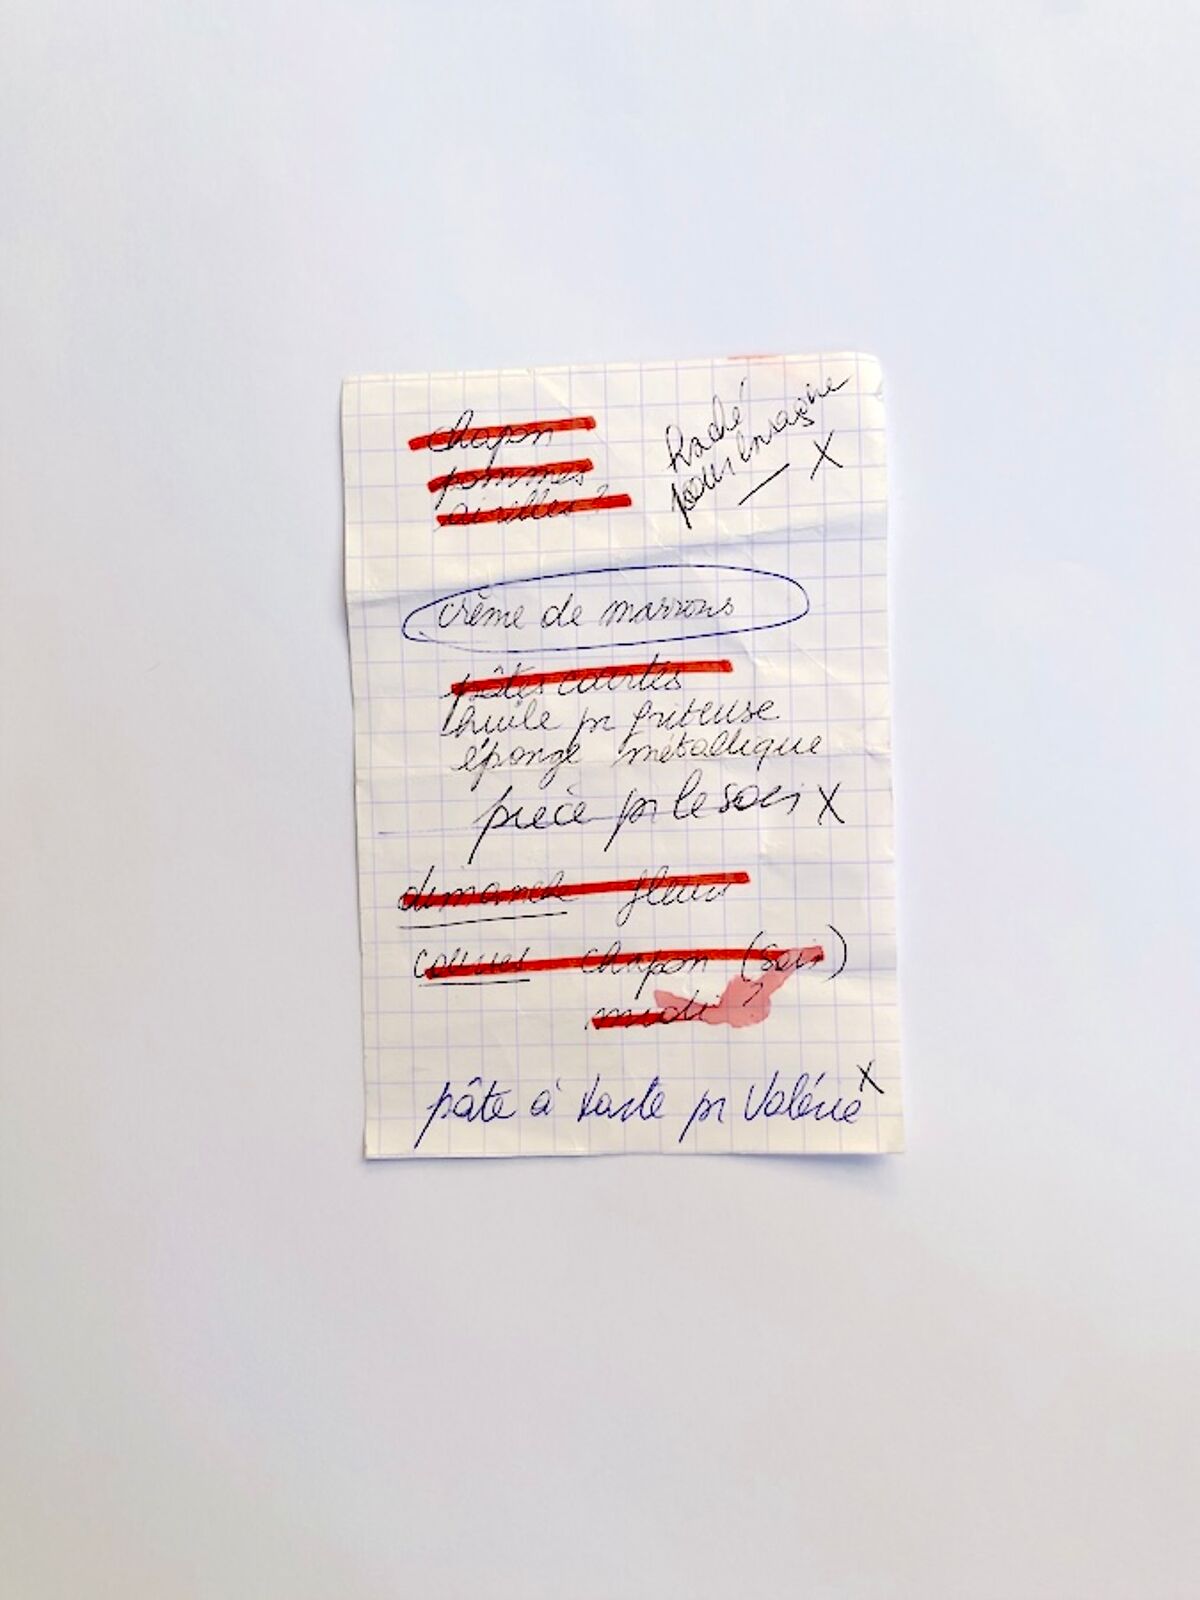 chapon
pommes
airelles ?
haché
pour lasagne
X
crème de marrons
pâtes courtes
huile pr friteuse
éponge métallique
pr le soir X
dimanche fleurs
courses chapon (soir)
midi ?
pâte à tarte pr Valérie X